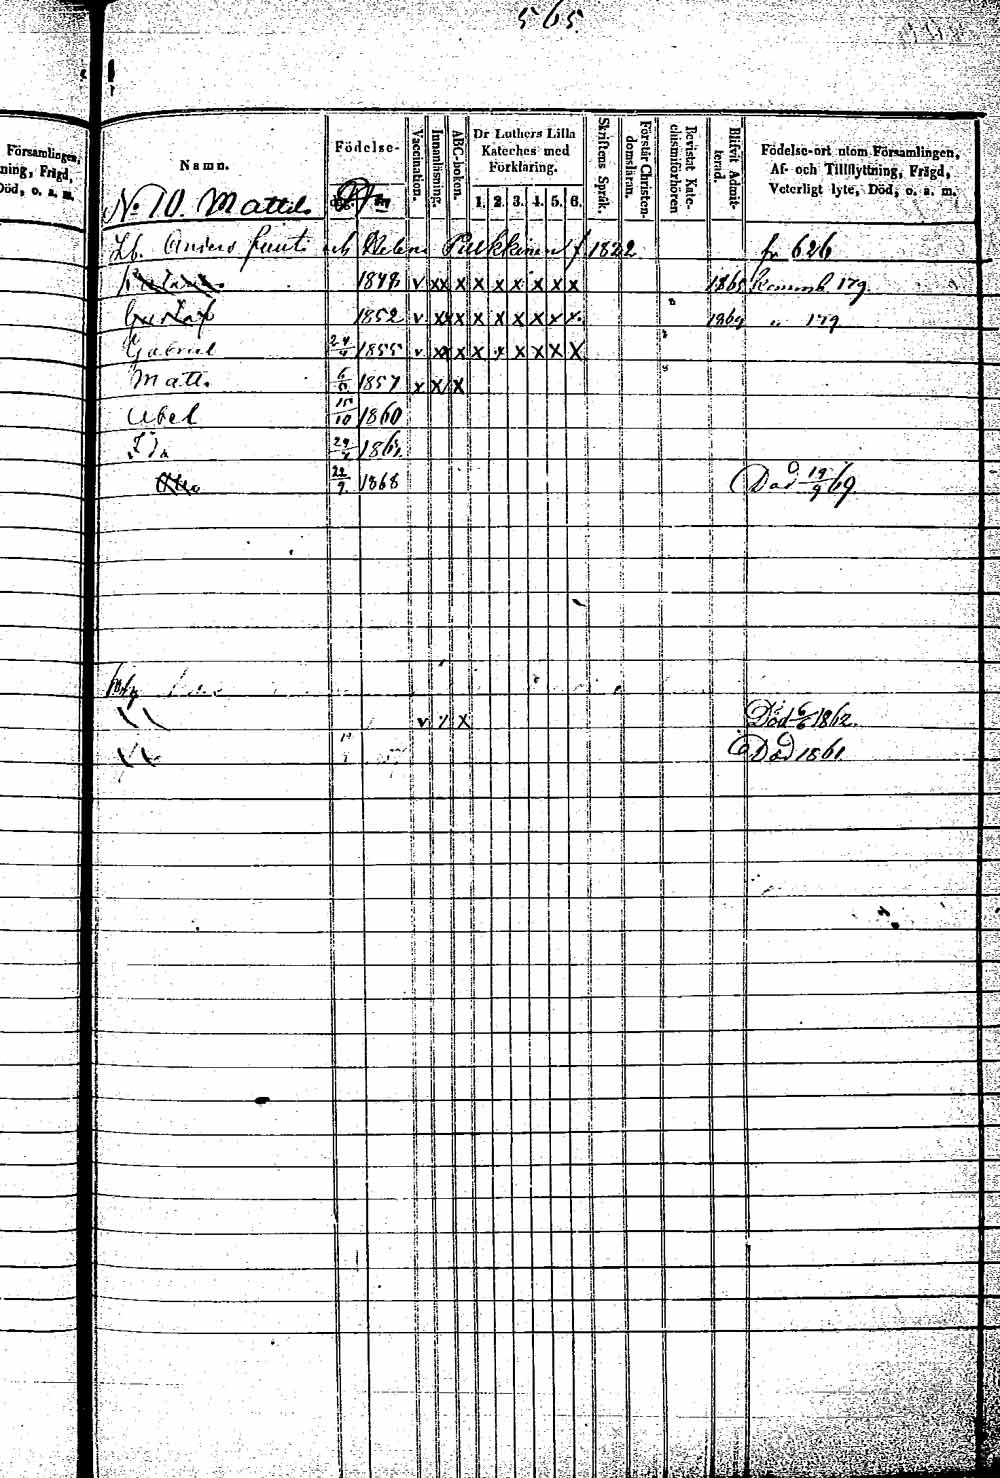 565
Församlingen,
ning, Frägd,
Död, o. s. m.
Namn.
Födelse-
Vaccination.
Innanläsning.
ABC-boken.
Dr Luthers Lilla
Kateches med
Förklaring.
1. 2. 3. 4. 5. 6.
Skriftens Språk.
Förstår Christen-
domsläran.
Bevistat Kate-
chismiförhören
Blifvit Admit-
terad.
Födelse-ort utom Församlingen,
Af- och Tillflyttning, Frägd,
Veterligt lyte, Död, o. s. m.
No 10. Mattila
Lb. Anders och Helena Pulkkinen f 1822 fr 626
1848 v xx x x x x x x x 1865 179.
Gustaf 1852 v xx x x x x x x x. 1869 " 179
Gabriel 1855 v xx x x x x x x x
Matts 6/5 1857 x x x
Abel 15/10 1860
Ida
22/9. 1868 Död 19/9 69.
v x x Död 6/6 1862.
Död 1861.